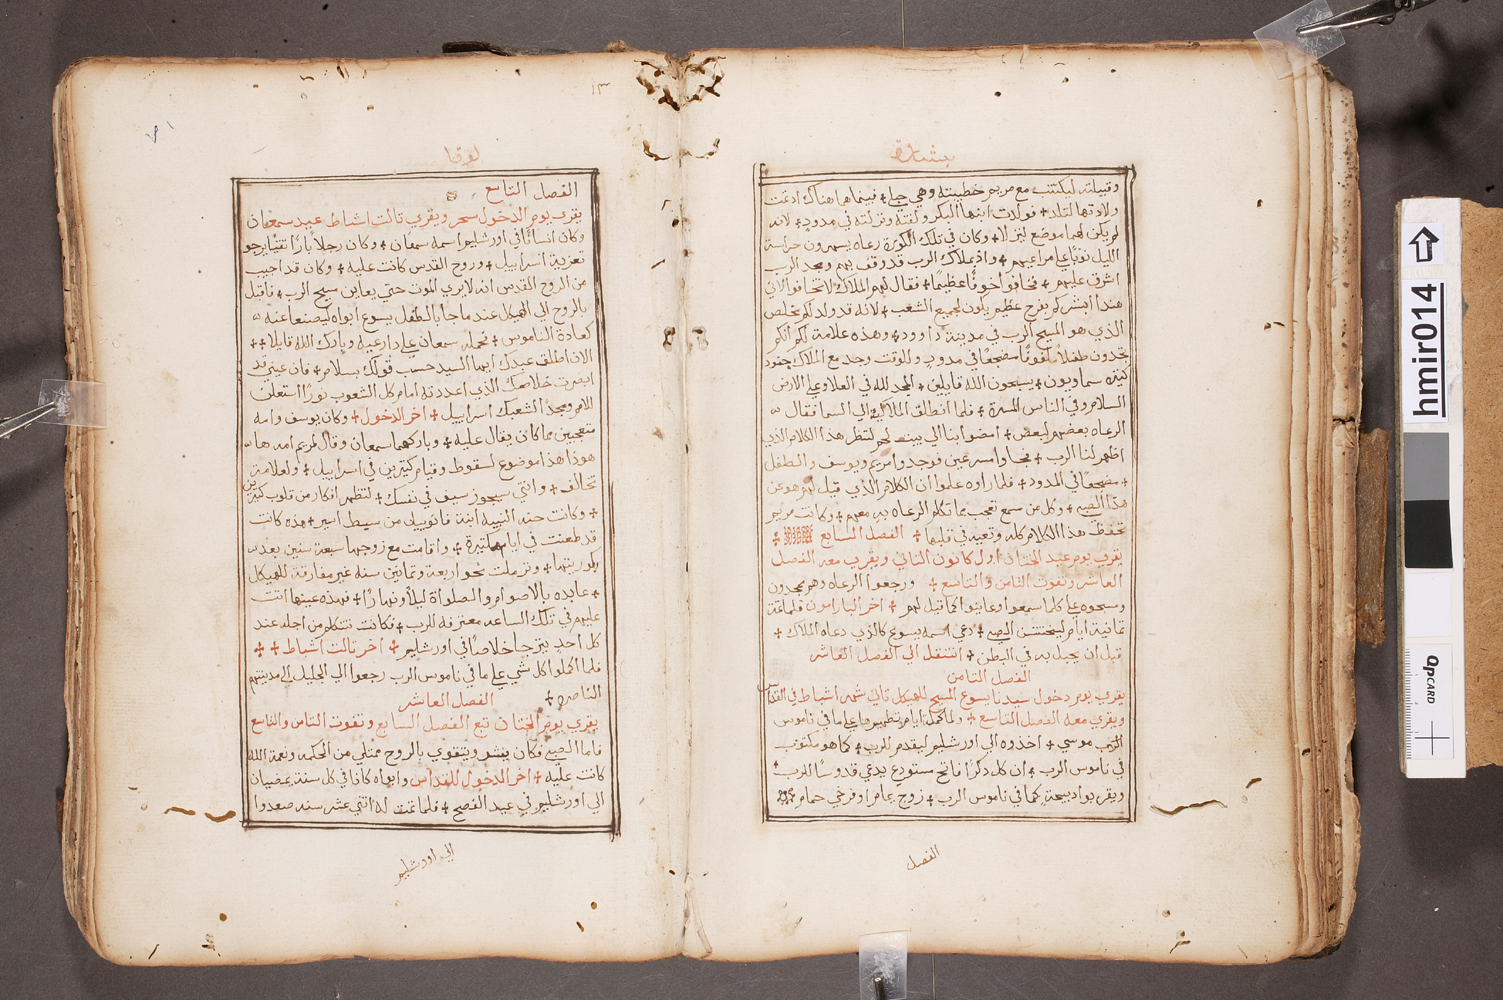 بشارة
وقبيلته ليكتتب مع مريم خطيبته وهي حبلى ✢ فبينما هما هناك اذ تمت
ولادتها لتلد ✢ فولدت ابنها البكر ولفته وتركته في مدود ✢ لانه
لم يكن لهما موضع لينزلاه وكان في تلك الكورة رعاه يسهرون حراسة
الليل نوبًا على مراعيهم ✢ واذ ملاك الرب قد وقف بهم ومجد الرب
اشرق عليهم ✢ فخافوا خوفًا عظيمًا ✢ فقال لهم الملاك لا تخافوا لاني
هنذا ابشركم بفرح عظيم يكون لجميع الشعب ✢ لانه قد ولد لكم مخلص
الذي هو المسيح الرب في مدينة داوود ✢ وهذه علامة لكم انكم
تجدون طفلاً ملفوفًا مضجعًا في مدود وللوقت وجد مع الملاك جنود
كثيره سماويون ✢ يسبحون الله قايلين ✢ المجد لله في العلا وعلى الارض
السلام وفي الناس المسره ✢ فلما انطلق الملايكه الى السما فقال
الرعاه بعضهم لبعض ✢ امضوا بنا الي بيت لحم لننظر هذا الكلام الذي
اظهر لنا الرب ✢ فجاوا مسرعين فوجدوا مريم ويوسف والطفل
✢ مضجعًا في المدود ✢ فلما راوه علموا ان الكلام الذي قيل لهم هو عن
هذا الصبي ✢ وكل من سمع تعجب مما تكلم الرعاه به معهم ✢ وكانت مريم
تحفظ هذا الكلام كله وتعيه في قلبها ✢ الفصل السابع ✢
يقرى يوم عيد الختان اول كانون التاني ويقرى معه الفصل
العاشر وتفوت التامن والتاسع ✢ ورجعوا الرعاه وهم يمجدون
ويسبحوه على كلما سمعوا وعاينوا كما قيل لهم ✢ اخر البارامون فلما تمت
تمانية ايام ليختتن الصبي ✢ دعي اسمه يسوع كالذي دعاه الملاك ✢
قبل ان يحبل به في البطن ✢ انتقل الي الفصل العاشر
الفصل التامن
يقرى يوم دخول سيدنا يسوع المسيح للهيكل تاني شهر اشباط في القداس
ويقرى معه الفصل التاسع ✢ ولما كملت ايام تطهيرها على ما في ناموس
الرب موسي ✢ اخذوه الي اورشليم ليقدم للرب ✢ كما هو مكتوب
في ناموس الرب ✢ ان كل ذكرًا فاتح مستودع يدعي قدوسًا للرب
ويقربوا دبيحة كما في ناموس الرب ✢ زوج يمام او فرخي حمام
الفصل
١٣
لوقا
الفصل التاسع
يقرى يوم الدخول سحر ويقرى تالت اشباط عيد سمعان
وكان انسانًا في اورشليم اسمه سمعان ✢ وكان رجلاً بارًا تقيًا يرجو
تعزية اسراييل ✢ وروح القدس كانت عليه ✢ وكان قد اجيب
من الروح القدس انه لا يرى الموت حتي يعاين مسيح الرب ✢ فاقبل
بالروح الي الهيكل عند ما جا بالطفل يسوع ابواه ليصنعا عنه
كعادة الناموس ✢ فحمله سمعان على دراعيه وبارك الله قايلا ✢✢
الان اطلق عبدك ايها السيد حسب قولك بسلام ✢ فان عيني قد
ابصرت خلاصك الذي اعددته امام كل الشعوب نورًا استعلن
للامم ومجدًا لشعبك اسراييل ✢ اخر الدخول ✢ وكان يوسف وامه
متعجبين مما كان يقال عليه ✢ وباركهما سمعان وقال لمريم امه ها
هوذا هذا موضوع لسقوط وقيام كتيرين في اسراييل ✢ ولعلامة
تخالف ✢ وانتي سيجوز سيف في نفسك ✢ لتظهر افكار من قلوب كتيرين
✢ وكانت حنه النبيه ابنة فانوييل من سبط اسير ✢ هذه كانت
قد طعنت في ايام كتيرة ✢ واقامت مع زوجها سبعة سنين بعد
بكوريتها ✢ وترملت نحو اربعة وتمانين سنه غير مفارقة للهيكل
✢ عابده بالاصوام والصلواة ليلاً ونهارًا ✢ فهذه عينها اتت
عليهم في تلك الساعه معترفه للرب ✢ فكانت تتكلم من اجله عند
كل احد يترجا خلاصًا في اورشليم ✢ اخر تالت اشباط ✢ ✢
فلما اكملوا كل شي على ما في ناموس الرب رجعوا الي الجليل الي مدينتهم
الناصره ✢ الفصل العاشر
يقرى يوم الختان تبع الفصل السابع وتفوت التامن والتاسع
فاما الصبي فكان ينشو ويتقوى بالروح ممتلي من الحكمه ونعمة الله
كانت عليه ✢ اخر الدخول للقداس وابواه كانا في كل سنة يمضيان
الي اورشليم في عيد الفصح ✢ فلما تمت له اتني عشر سنه صعدوا
الي اورشليم
hmir014
QPCARD